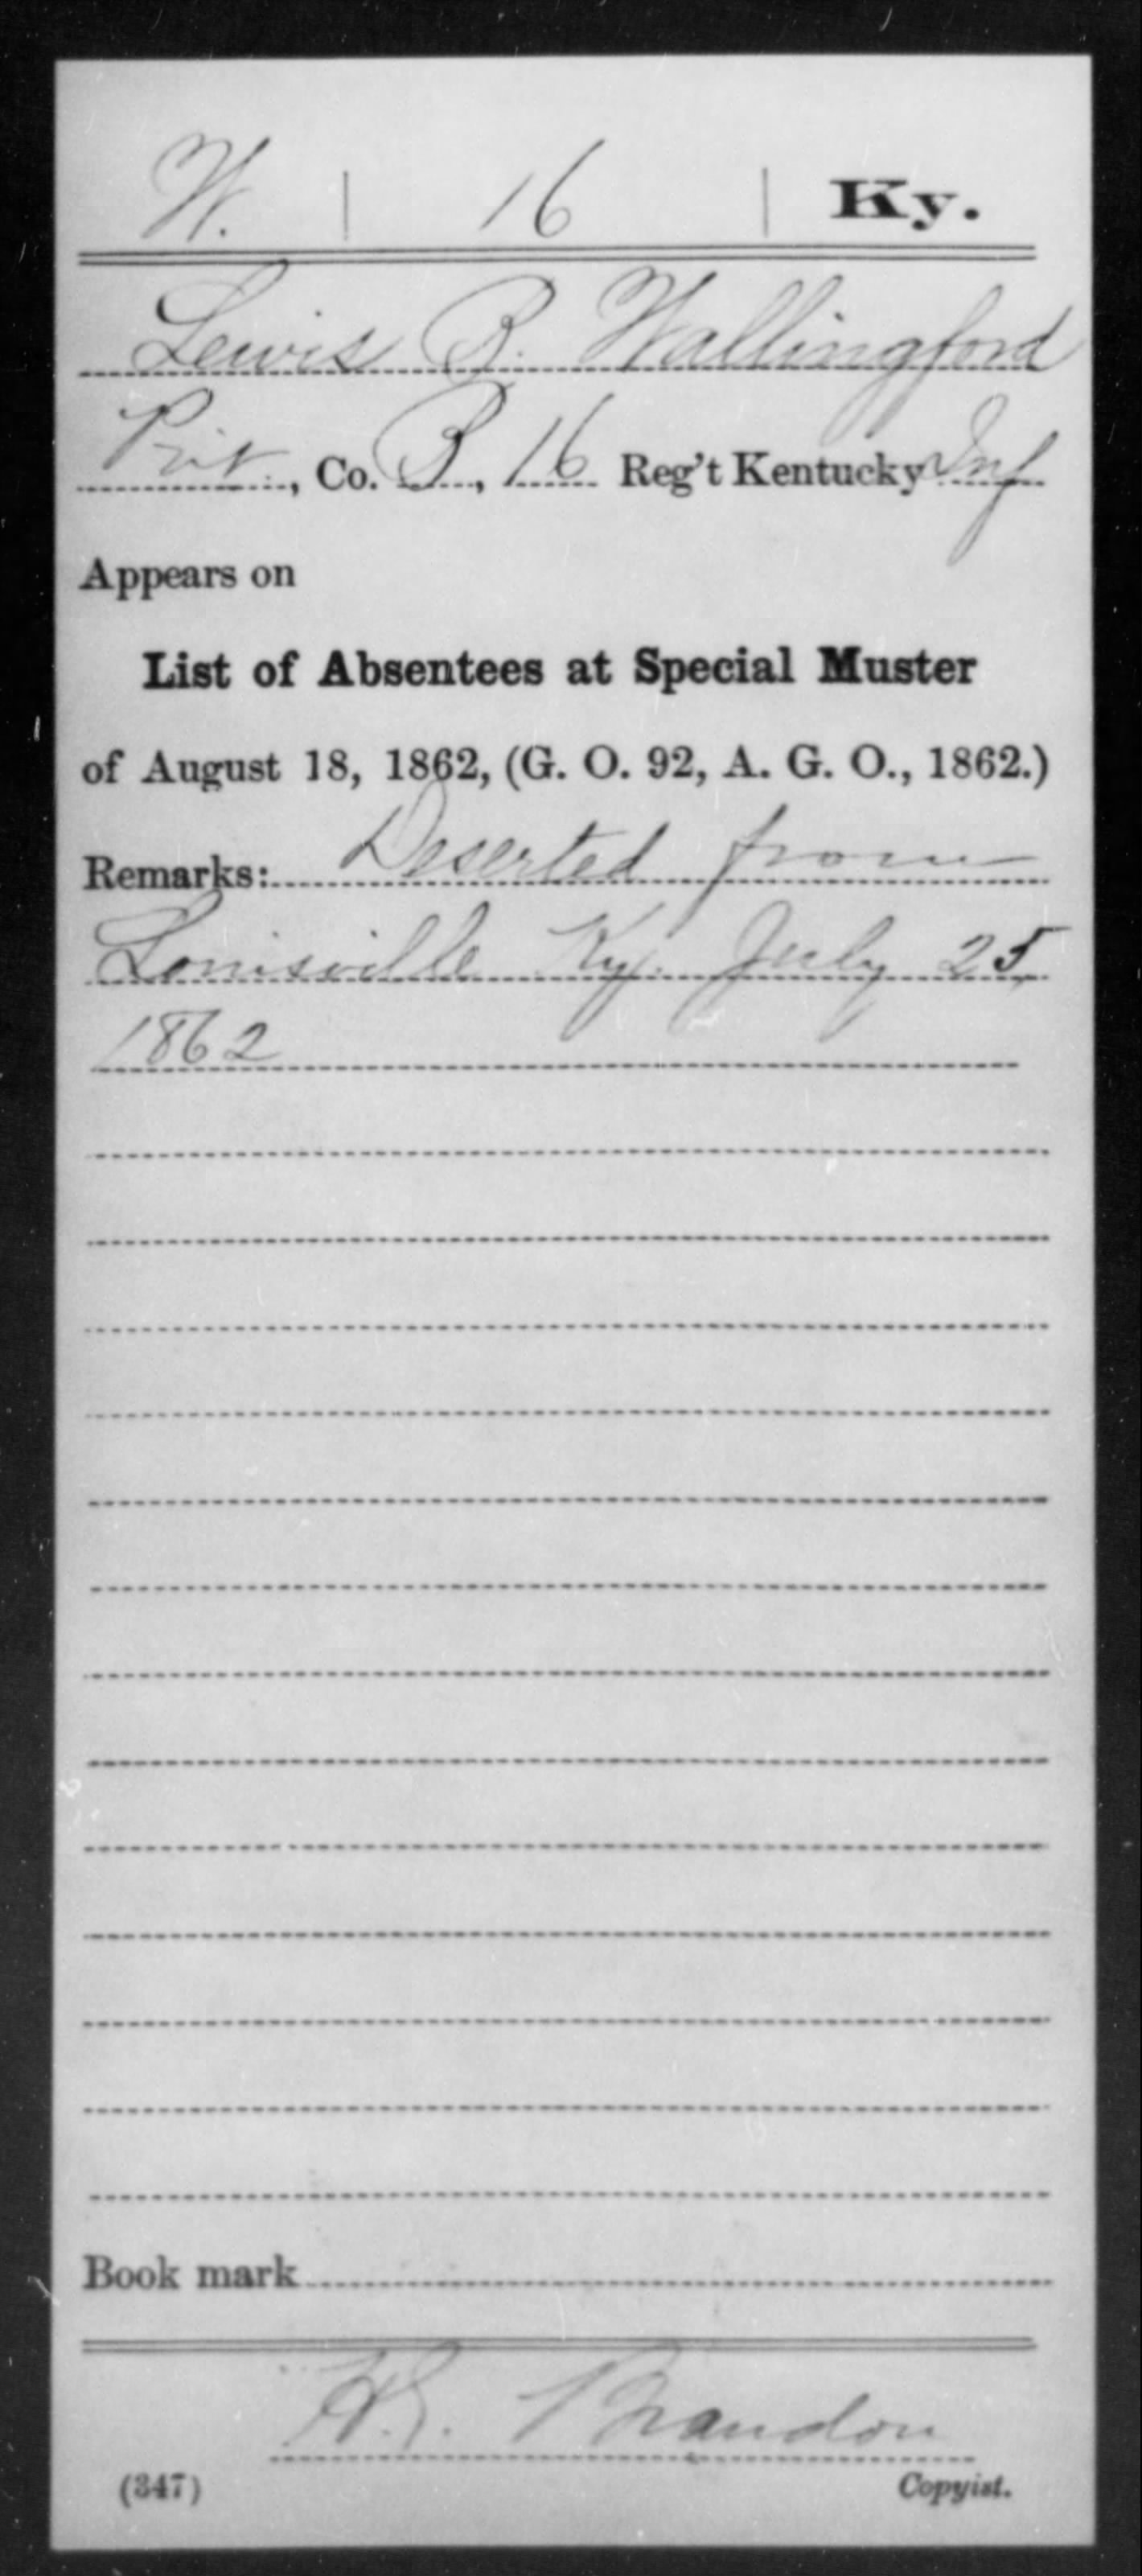 W. | 16 | Ky.
Lewis B. Wallingford
Pvt., Co. B, 16 Reg't Kentucky Inf
Appears on
List of Absentees at Special Muster
of August 18, 1862, (G. O. 92, A. G. O., 1862.)
Remarks: Deserted from
Louisville Ky. July 25
1862
Book mark
Brandon
(347) Copyist.